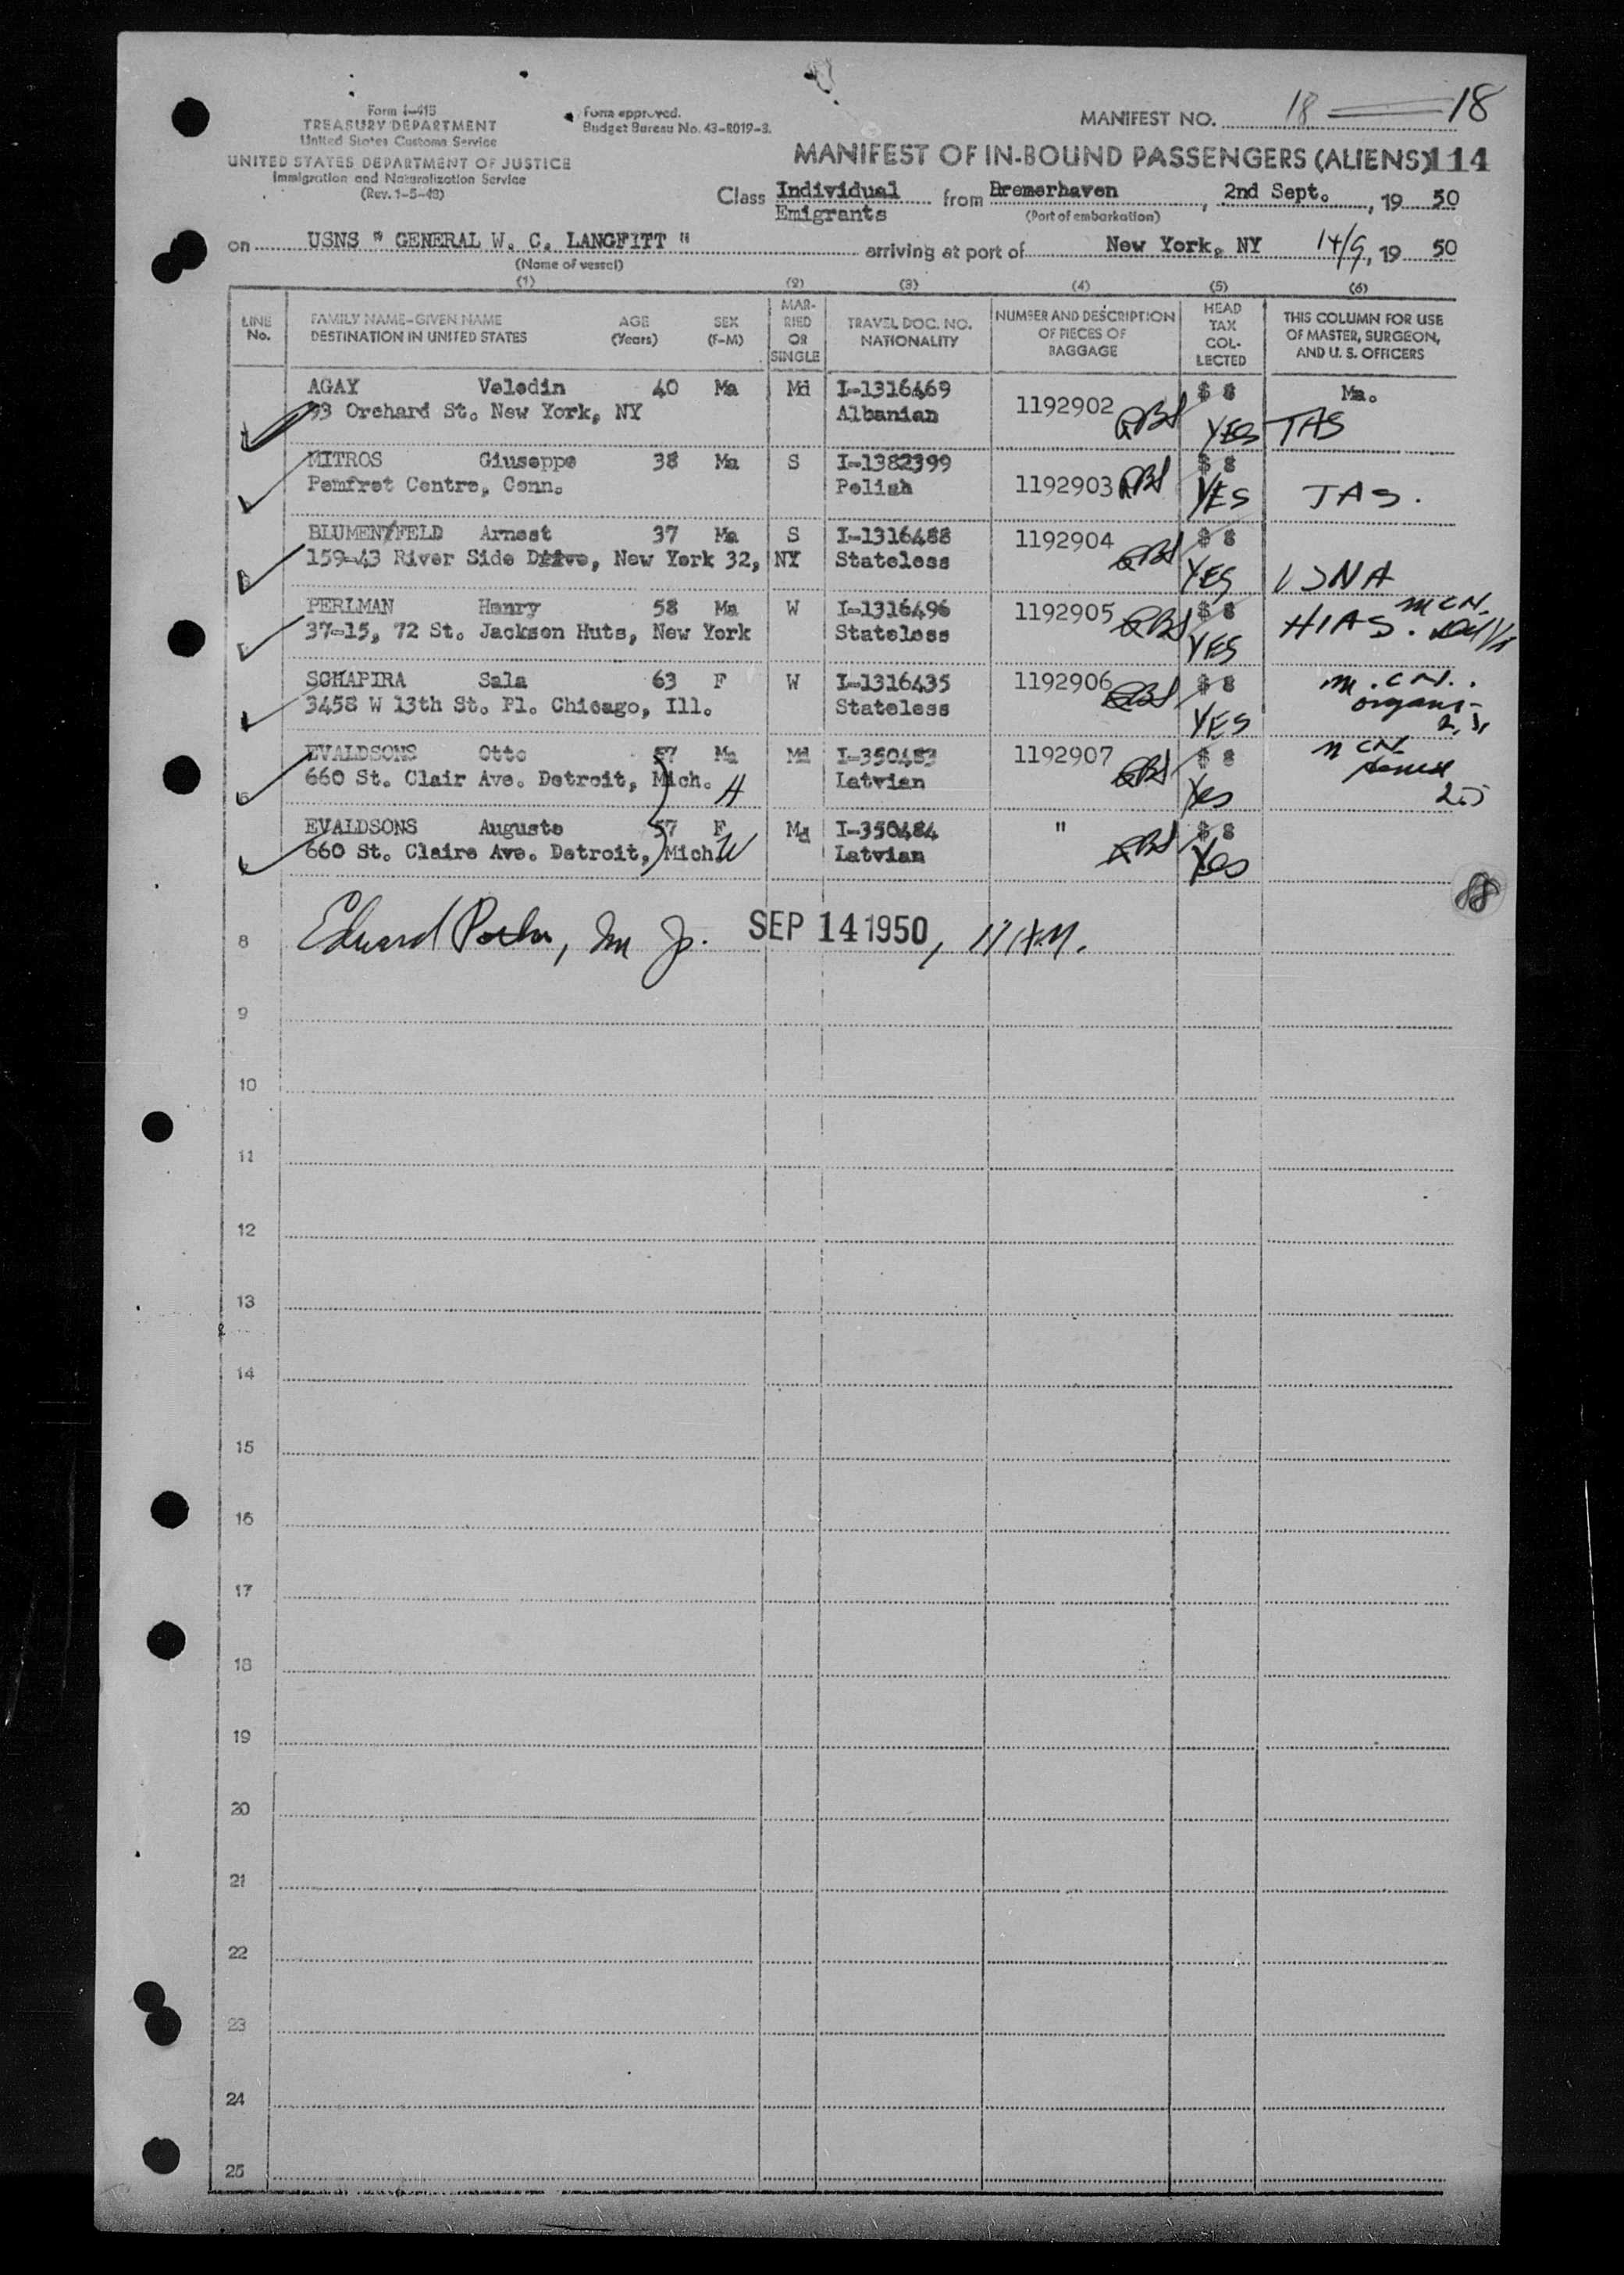 Form I-415
TREASURY DEPARTMENT
United States Customs Service
UNITED STATES DEPARTMENT OF JUSTICE
Immigration and Naturalization Service
(Rev. 1-5-49)
Form approved.
Budget Bureau No. 43-R019-3.
MANIFEST NO. 18 18
MANIFEST OF IN-BOUND PASSENGERS (ALIENS) 114
Class Individual Emigrants from Bremerhaven, 2nd Sept., 19 50
(Port of embarkation)
on USNS " GENERAL W. C. LANGFITT " arriving at port of New York, NY 14/9, 19 50
(Name of vessel)
(1) (2) (3) (4) (5) (6)
LINE No. FAMILY NAME-GIVEN NAME DESTINATION IN UNITED STATES AGE (Years) SEX (F-M) MARRIED OR SINGLE TRAVEL DOC. NO. NATIONALITY NUMBER AND DESCRIPTION OF PIECES OF BAGGAGE HEAD TAX COLLECTED THIS COLUMN FOR USE OF MASTER, SURGEON, AND U. S. OFFICERS
AGAY Veledin 40 Ma Md I-1316469 1192902 $ 8 Ma.
93 Orchard St. New York, NY Albanian YES TAS
MITROS Giuseppe 38 Ma S I-1382399 1192903 $ 8
Pomfret Centre, Conn. Polish YES TAS.
BLUMENFELD Arnest 37 Ma S I-1316488 1192904 $ 8
159-43 River Side Drive, New York 32, NY Stateless YES USNA
PERLMAN Henry 58 Ma W I-1316496 1192905 $ 8
37-15, 72 St. Jackson Huts, New York Stateless YES HIAS.
SCHAPIRA Sala 63 F W I-1316435 1192906 $ 8
3458 W 13th St. Pl. Chicago, Ill. Stateless YES
EVALDSONS Otto 57 Ma Md I-350483 1192907 $ 8
660 St. Clair Ave. Detroit, Mich. H Latvian Yes
EVALDSONS Auguste 57 F Md I-350484 " $ 8
660 St. Claire Ave. Detroit, Mich. W Latvian Yes
8 Edward SEP 14 1950, 11 AM.
9
10
11
12
13
14
15
16
17
18
19
20
21
22
23
24
25